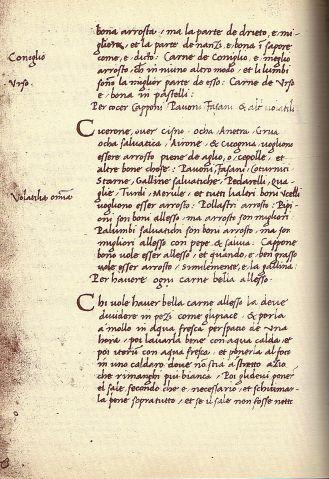 bona arrosta, ma la parte de drieto, e, mi
gliore, et la parte de nanzi, e, bona i sapore
Coniglio
come, e, ditto: Carne de Coniglio, e, meglio
arrosto, ch in niuno altro modo, et li lumbi
sonno la miglior parte de esso: Carne de Urso
Urso.
e, bona in pastelli:
Per cocer Capponi Pavoni Fasani & altri volatili
Cicerone, over Cisno. ocha Anetra, Grua
ocha salvatica, Airone, & Cicogna vogliono
essere arrosto piene de aglio, o, cepolle, et
altre bone chose: Pavoni, Fasani, Coturnici
Starne, Galline salvatiche, Pedarelli, Qua
glie, Turdi, Merule, et tutti li altri boni Ucelli
Volatilia omnia
vogliono esser arrosto: Pollastri arrosto: Pipi
oni son boni allesso, ma arrosto son migliori.
Palumbi salvatichi son boni arrosto, ma son
migliori allesso con pepe & salvia: Cappone
bono vole esser allesso, et quando, e, ben grasso
vole esser arrosto, similemente, e, la gallina:
Per havere ogni carne bella allesso:
Chi vole haver bella carne allesso la deve
dividere in pezi come gli piace & porla
a mollo in aqua fresca per spatio de una
hora, poi lavarla bene con aqua calda, et
poi iterum con aqua fresca, et ponerla al foco
in uno caldaro dove no stia a stretto, a cio
che rimanghi piu bianca, Poi gli devi poner
el sale secondo che e, necessario, et schiumar
la pone sopratutto, et se il sale non fosse nett